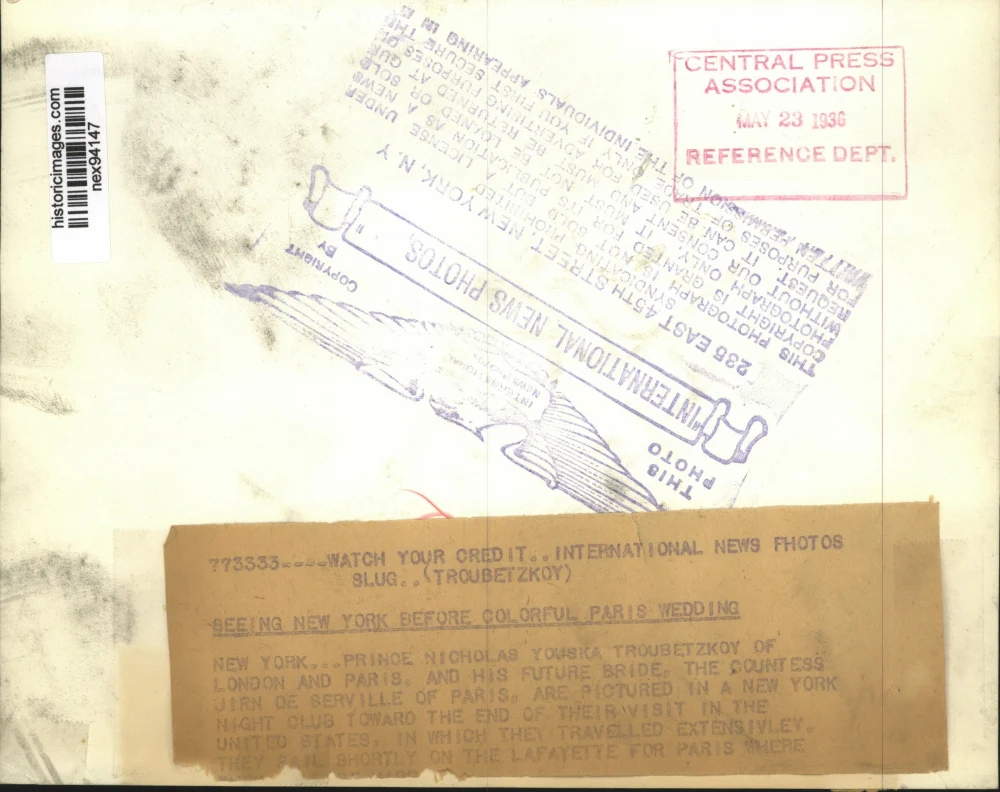 historicimages.com
nex94147
CENTRAL PRESS
ASSOCIATION
MAY 23 1936
REFERENCE DEPT.
THIS
PHOTO
COPYRIGHT
BY
"INTERNATIONAL NEWS PHOTOS"
235 EAST 45TH STREET NEW YORK, N. Y
THIS PHOTOGRAPH IS
COPYRIGHT
PHOTOGRAPH IS
WITHOUT OUR CONSENT AND MUST
REQUEST. IT CAN BE USED FOR
FOR PURPOSES OF TRADE ONLY IF YOU FIRST SECURE THE
WRITTEN PERMISSION OF THE INDIVIDUALS APPEARING IN
773333----WATCH YOUR CREDIT..INTERNATIONAL NEWS PHOTOS
SLUG..(TROUBETZKOY)
SEEING NEW YORK BEFORE COLORFUL PARIS WEDDING
NEW YORK...PRINCE NICHOLAS YOUSKA TROUBETZKOY OF
LONDON AND PARIS, AND HIS FUTURE BRIDE, THE COUNTESS
JIRN DE SERVILLE OF PARIS, ARE PICTURED IN A NEW YORK
NIGHT CLUB TOWARD THE END OF THEIR VISIT IN THE
UNITED STATES, IN WHICH THEY TRAVELLED EXTENSIVLEY.
THEY SAIL SHORTLY ON THE LAFAYETTE FOR PARIS WHERE